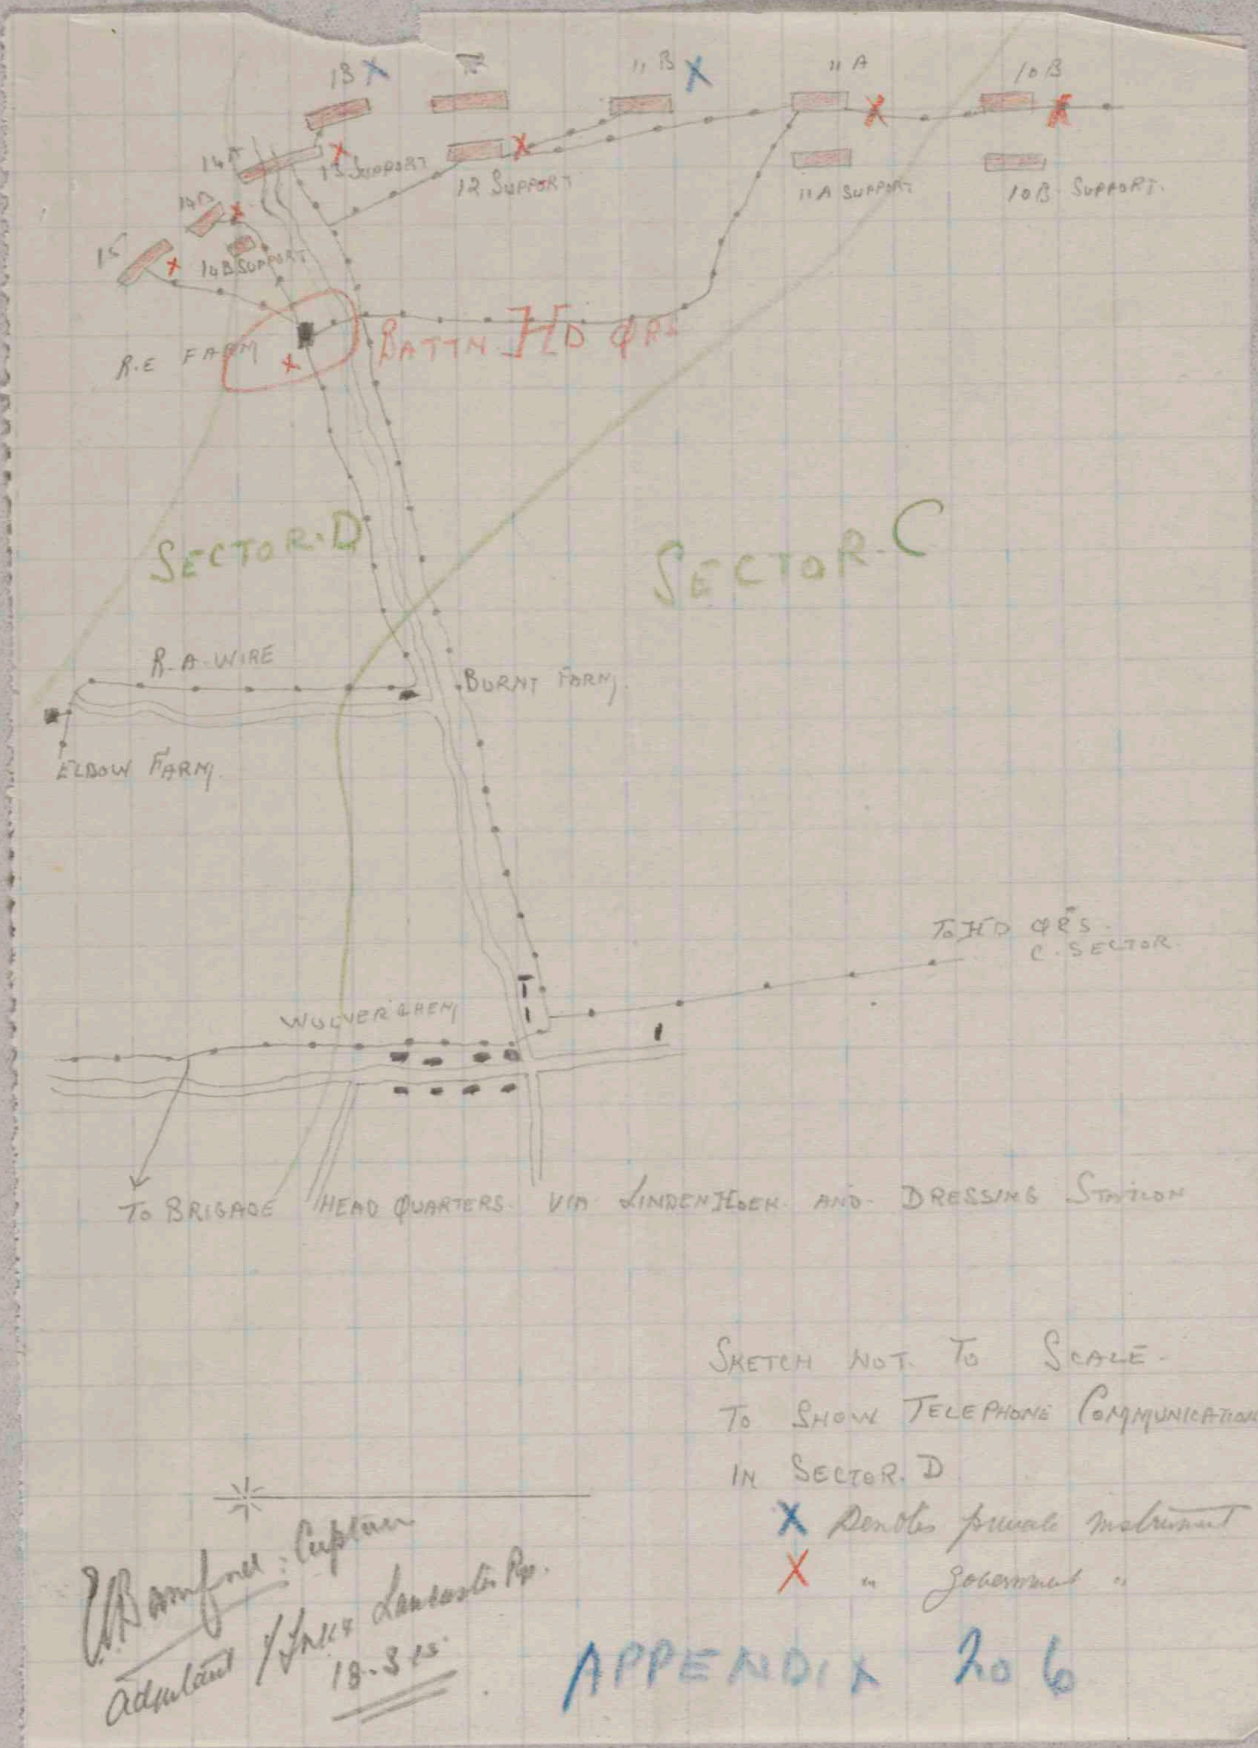 13 X
11 B X
11 A
10 B
14 A
13 SUPPORT
12 SUPPORT
11A SUPPORT
10B SUPPORT.
14B
15
14B SUPPORT
R.E FARM
BATTN HD QRS
SECTOR. D
SECTOR. C
R.A. WIRE
BURNT FARM
ELBOW FARM
TO HD QRS.
C. SECTOR
WULVERGHEM
TO BRIGADE HEAD QUARTERS. VIA LINDENHOEK AND DRESSING STATION
SKETCH NOT. TO SCALE.
TO SHOW TELEPHONE COMMUNICATION
IN SECTOR. D
X Denotes private instrument
X " government "
Captain
Adjutant Lancaster
18-3-15
APPENDIX 206